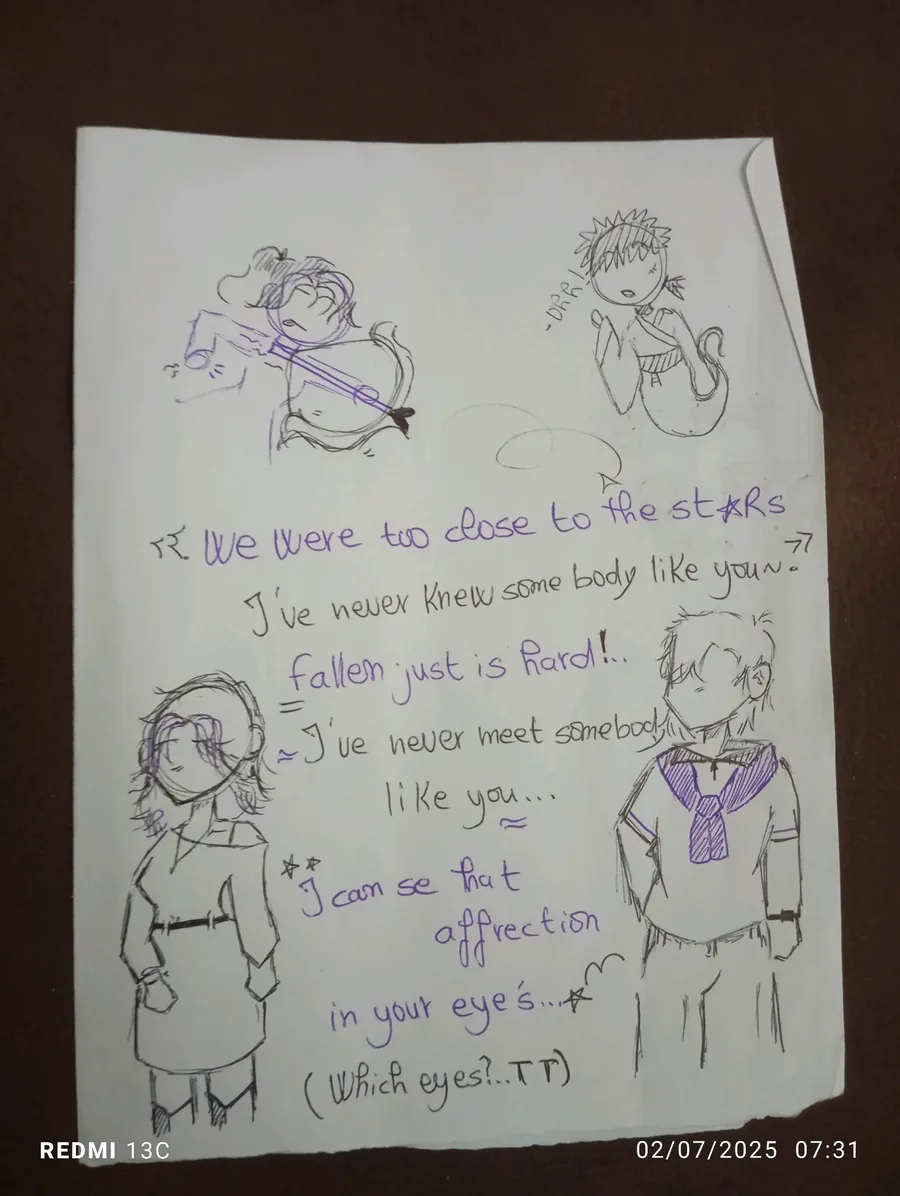 -DRR!
<< We were too close to the st★Rs
I've never knew some body like you~. >>
fallen just is hard!..
= 
≈ I've never meet somebody
like you...
≈
☆☆
I can se that
affrection
in your eye's...☆
(Which eyes?..TT)
REDMI 13C
02/07/2025 07:31